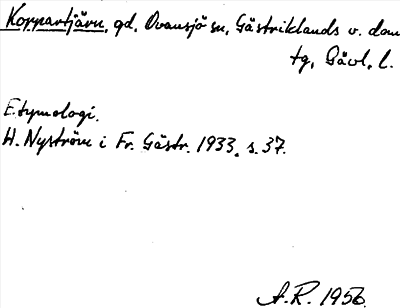 Koppartjärn, gd, Ovansjö sn, Gästriklands v. dom
tg, Gävl. l.
Etymologi.
H. Nyström i Fr. Gästr. 1933, s. 37.
A.R. 1956.